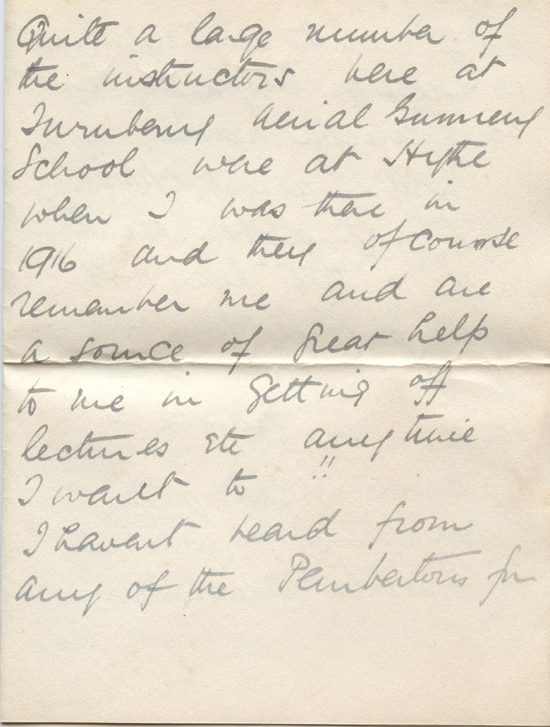 Quite a large number of
the instructors here at
Turnberry Aerial Gunnery
School were at Hythe
when I was there in
1916 and they ofcourse
remember me and are
a source of great help
to me in getting off
lectures etc any time
I want to !!
I havent heard from
any of the Pembertons for